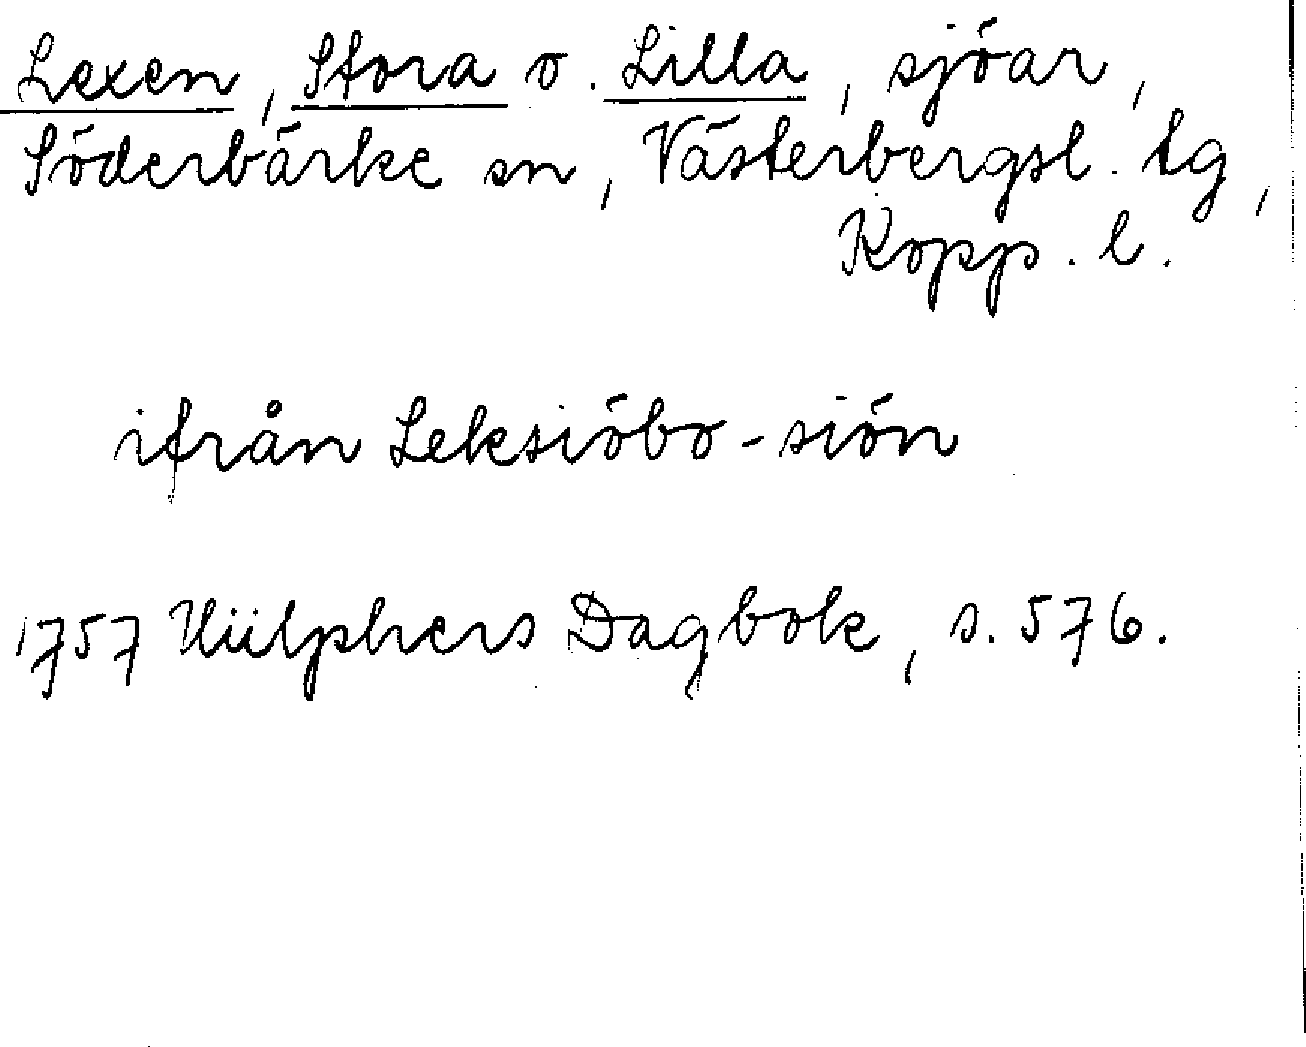 Lexen, Stora o. Lilla, sjöar,
Söderbärke sn, Västerbergsl. tg,
Kopp. l.
ifrån Leksiöbo-siön
1757 Hülphers Dagbok, s. 576.